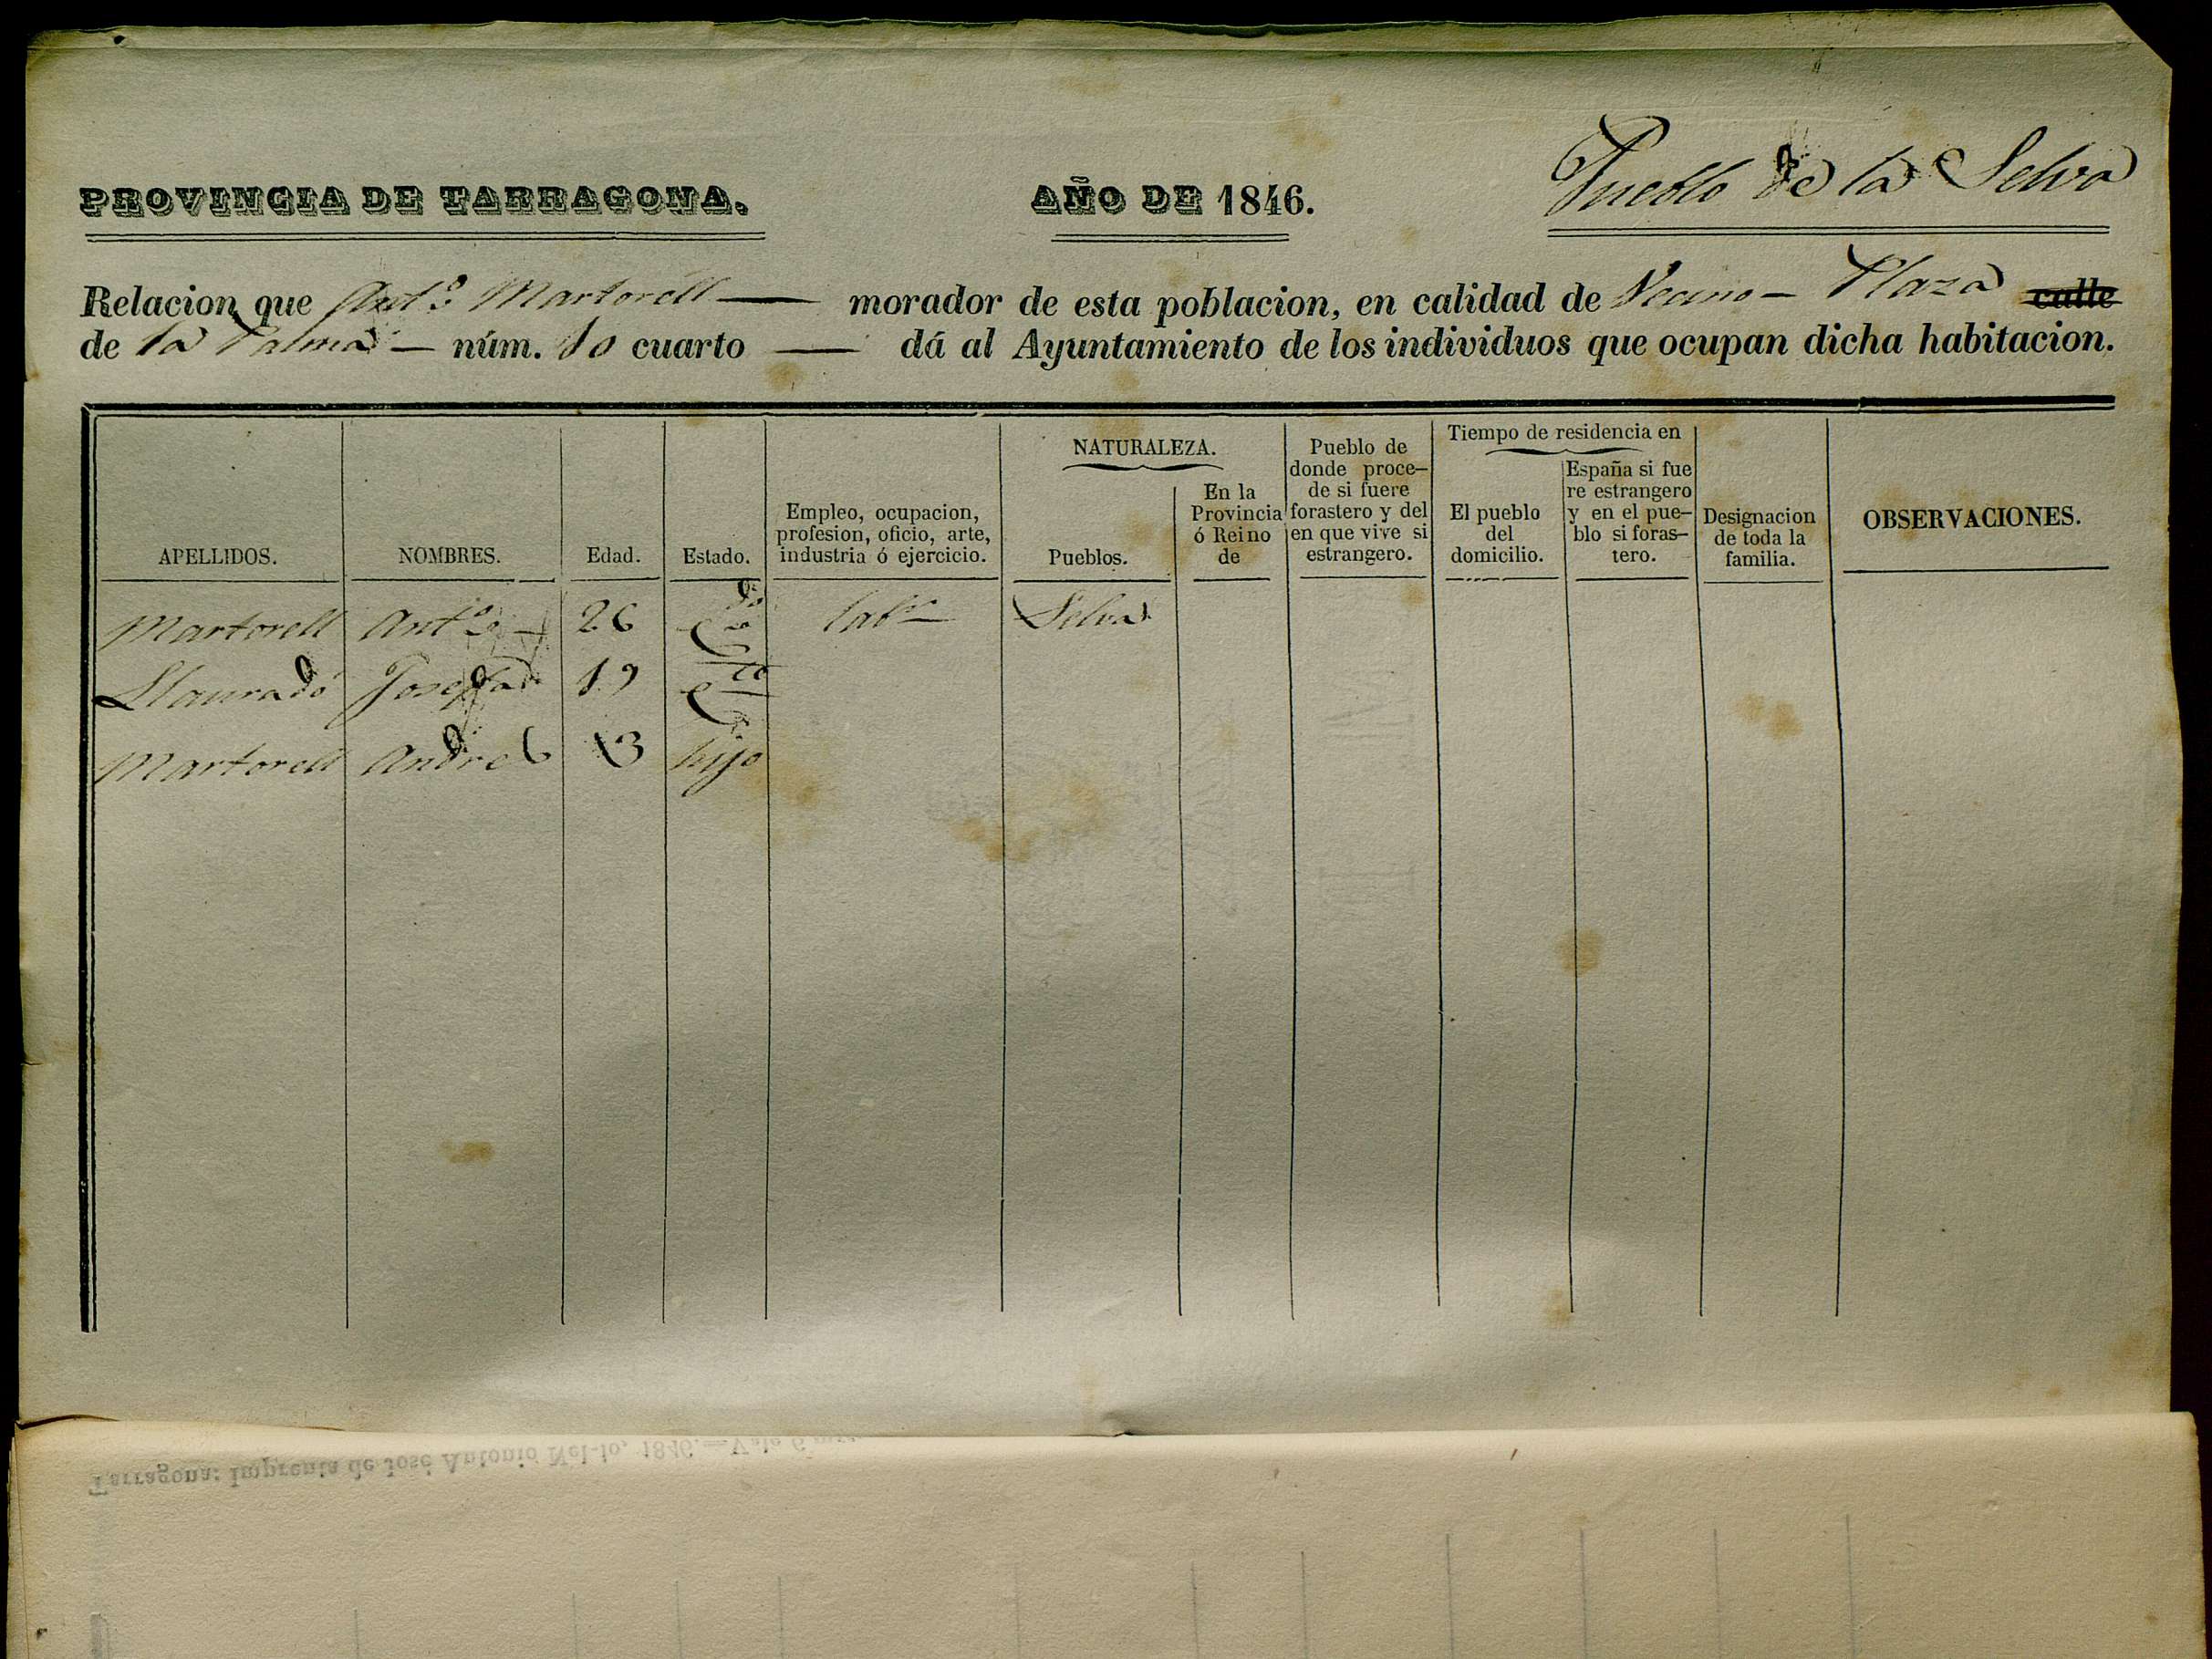 PROVINCIA DE TARRAGONA. AÑO DE 1846. Pueblo de la Selva
Relacion que Antº Martorell — morador de esta poblacion, en calidad de Vecino – Plaza calle
de la Palma – núm. 10 cuarto — dá al Ayuntamiento de los individuos que ocupan dicha habitacion.
APELLIDOS.
NOMBRES.
Edad.
Estado.
Empleo, ocupacion,
profesion, oficio, arte,
industria ó ejercicio.
NATURALEZA.
Pueblos.
En la
Provincia
ó Reino
de
Pueblo de
donde proce–
de si fuere
forastero y del
en que vive si
estrangero.
Tiempo de residencia en
El pueblo
del
domicilio.
España si fue
re estrangero
y en el pue–
blo si foras–
tero.
Designacion
de toda la
familia.
OBSERVACIONES.
Martorell Antº – 26 Cdo Labr Selva
Llauradó Josepha 19 Cta
Martorell Andres 13 hijo
Tarragona: Imprenta de José Antonio Nel-lo, 1846.—Vale 6 mrs.